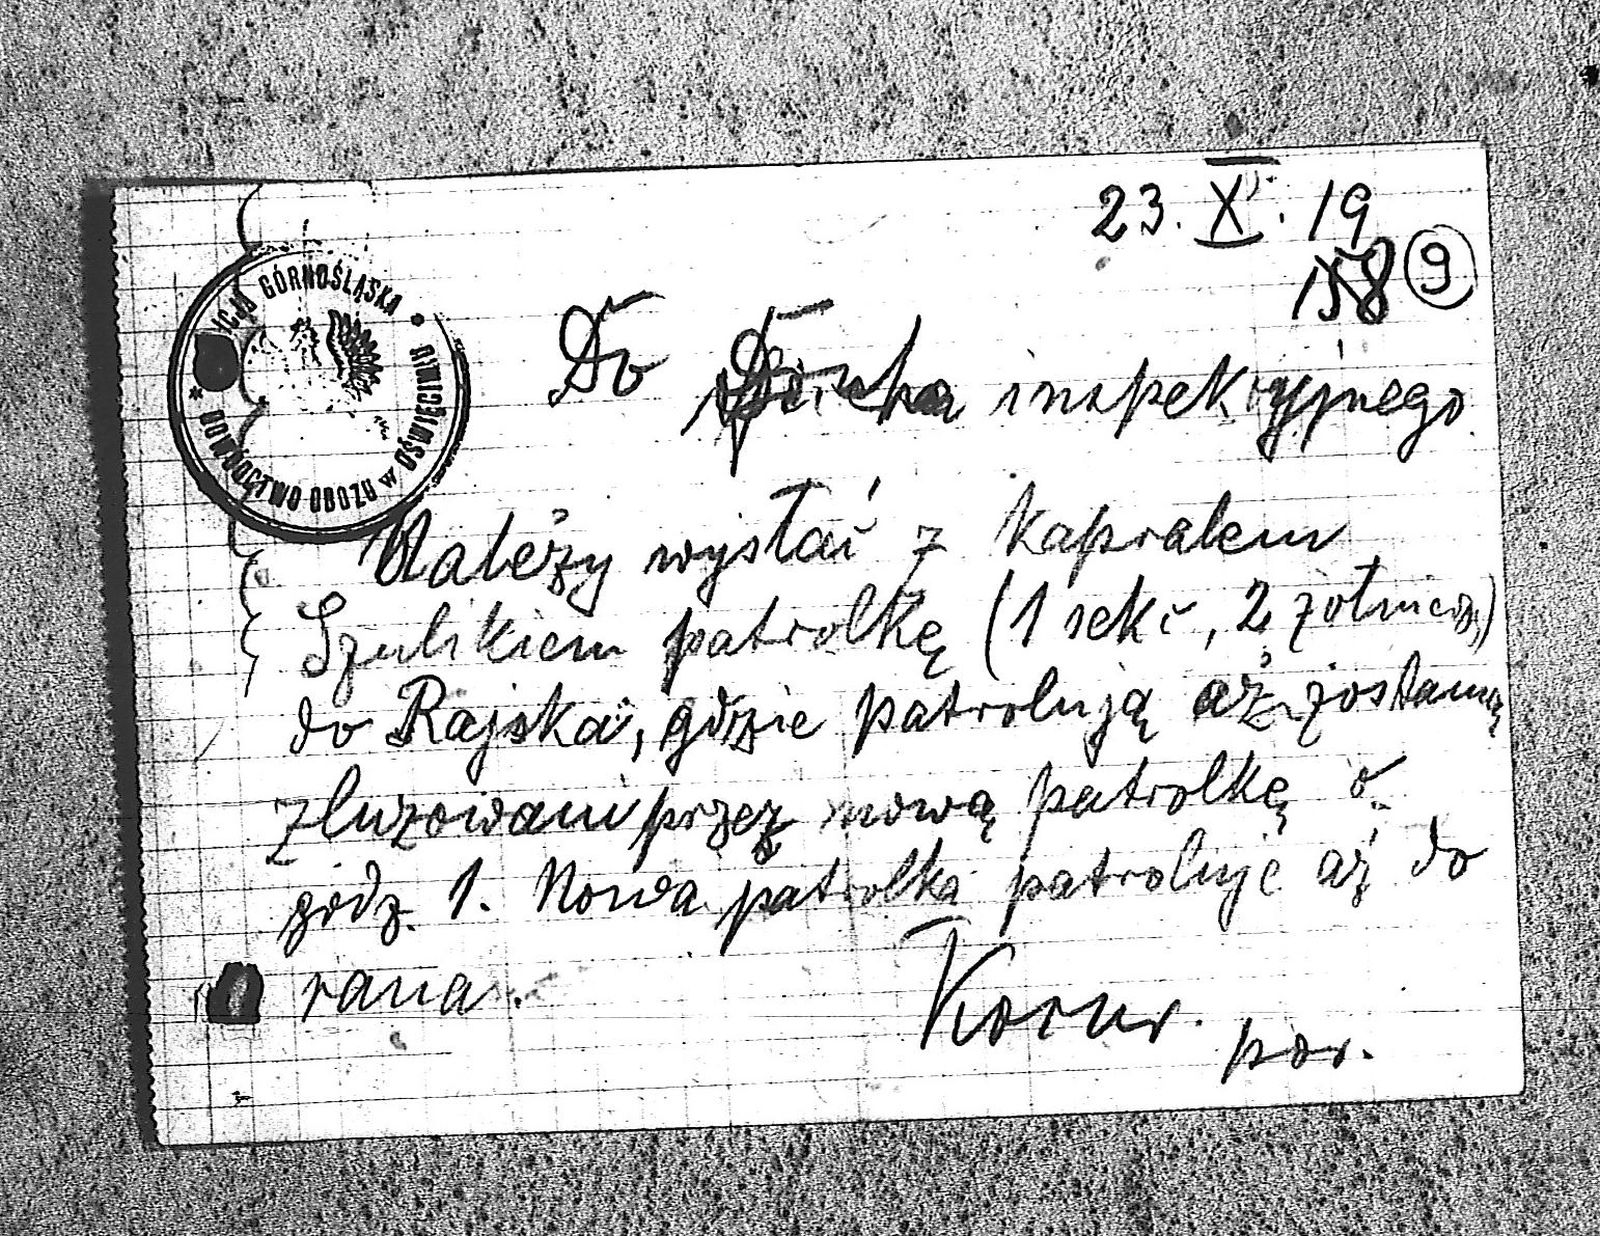 23. X. 19
158 9
ICJA GÓRNOŚLĄSKA
DOWÓDCTWO OBOZU w OŚWIĘCIMIU
Do inspekcyjnego
Należy wysłać z kapralem
Szulikiem patrolkę (1 sekc, 2 żołnierz)
do Rajska, gdzie patrolują aż zostaną
zluzowani przez nową patrolkę o
godz. 1. Nowa patrolka patroluje aż do
rana.
por.